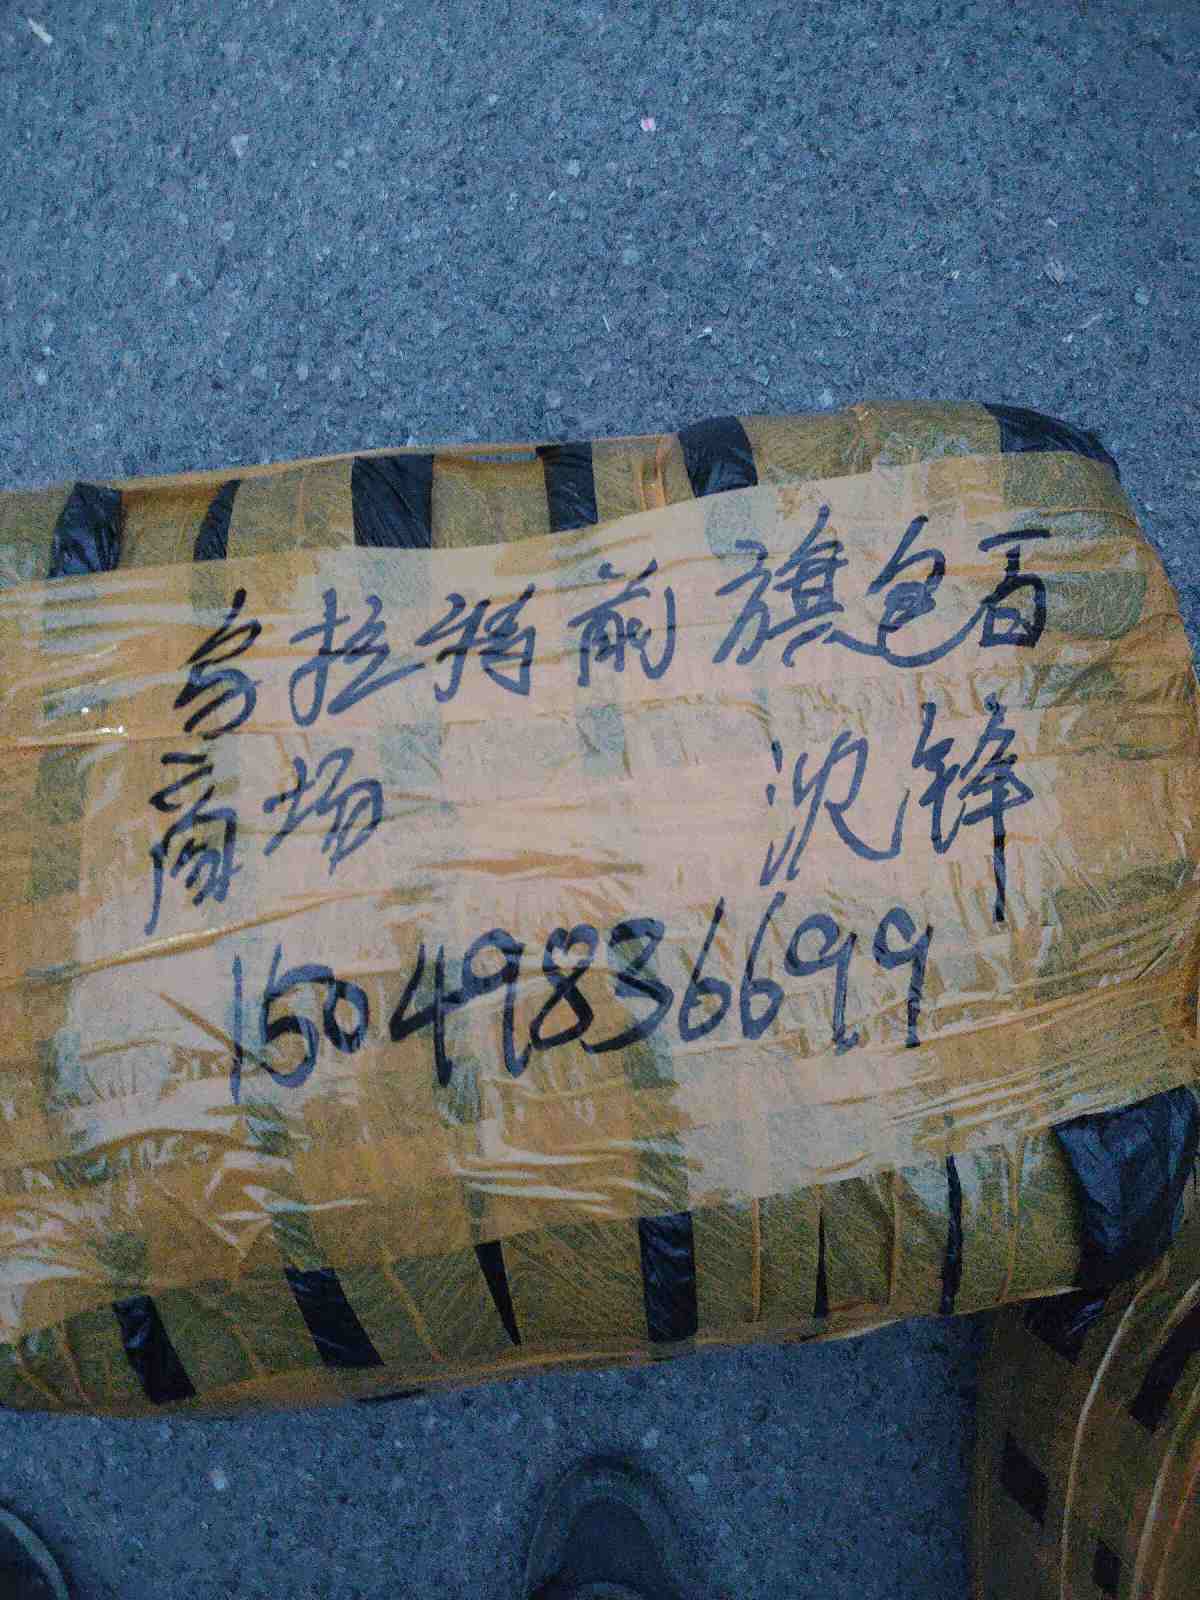 乌拉特前旗包百
商场 沈锋
15049836699